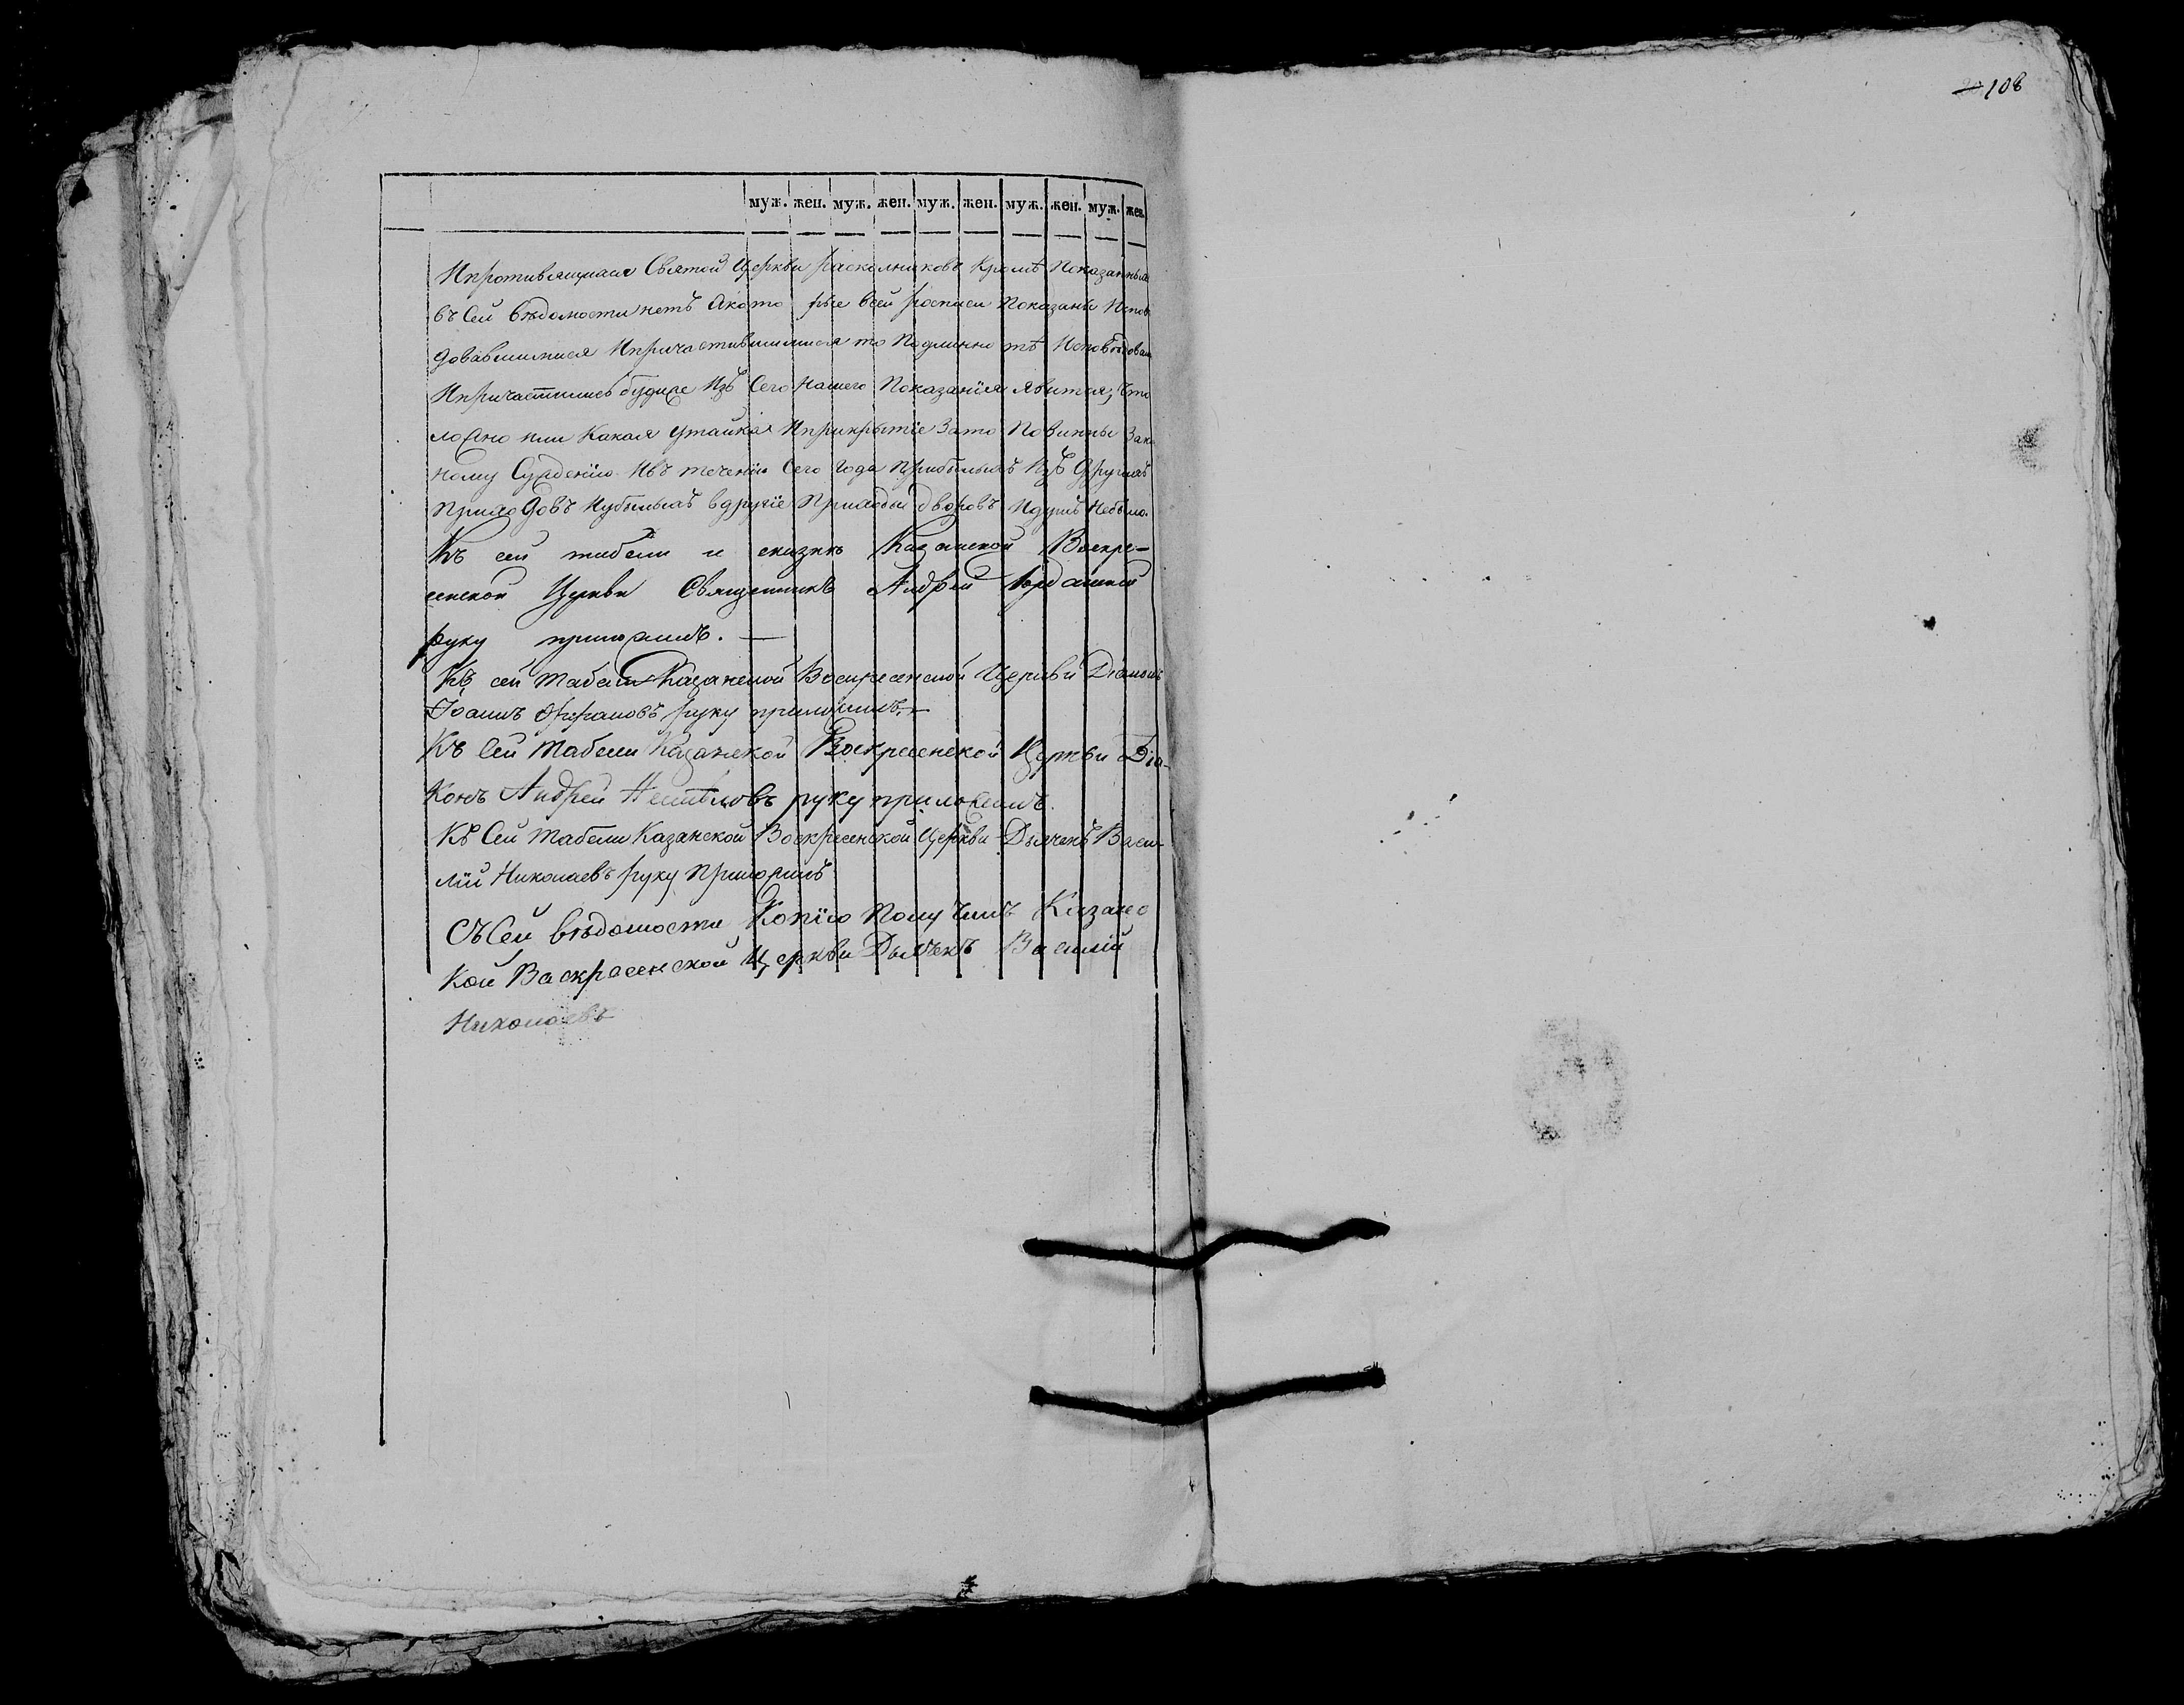 108
муж. жен. муж. жен. муж. жен. муж. жен. муж. жен.
Ипротивящихся Святой Церкви раскольниковъ Кромѣ Показанныхъ
въ Сей вѣдомости нетъ Акото рые всей росписи Показаны Испов
довавшимися Ипричастившимися то Подлинно тѣ Исповѣдовал
Ипричастились будеже Изъ Сего нашего Показанїя явится, что
ложно или Какая утайка Иприкрытїе Зато Повинны Зако
ному Сужденїю. Ивъ теченїи Сего года Прибылыхъ Изъ Другихъ
Приходовъ Иубылыхъ вдругїе Приходы дворовъ Идушъ Небыло.
Къ сей табели и Казанской Воскре-
сенской Церкви Священникъ Андрей
руку приложилъ. —
Къ сей табели Казанской Воскресенской Церкви Дїаконъ
Іоаннъ руку приложилъ. —
Къ Сей табели Казанской Воскресенской Церкви Дїа-
Конъ Андрей руку приложилъ.
Къ Сей табели Казанской Воскресенской Церкви Дьячекъ Васи-
лїй Николаевъ руку Приложилъ
СъСей вѣдомости Копїю Получилъ Казанс
Кой Васкрасенской Церкви Дьячекъ Василїй
Николаевъ